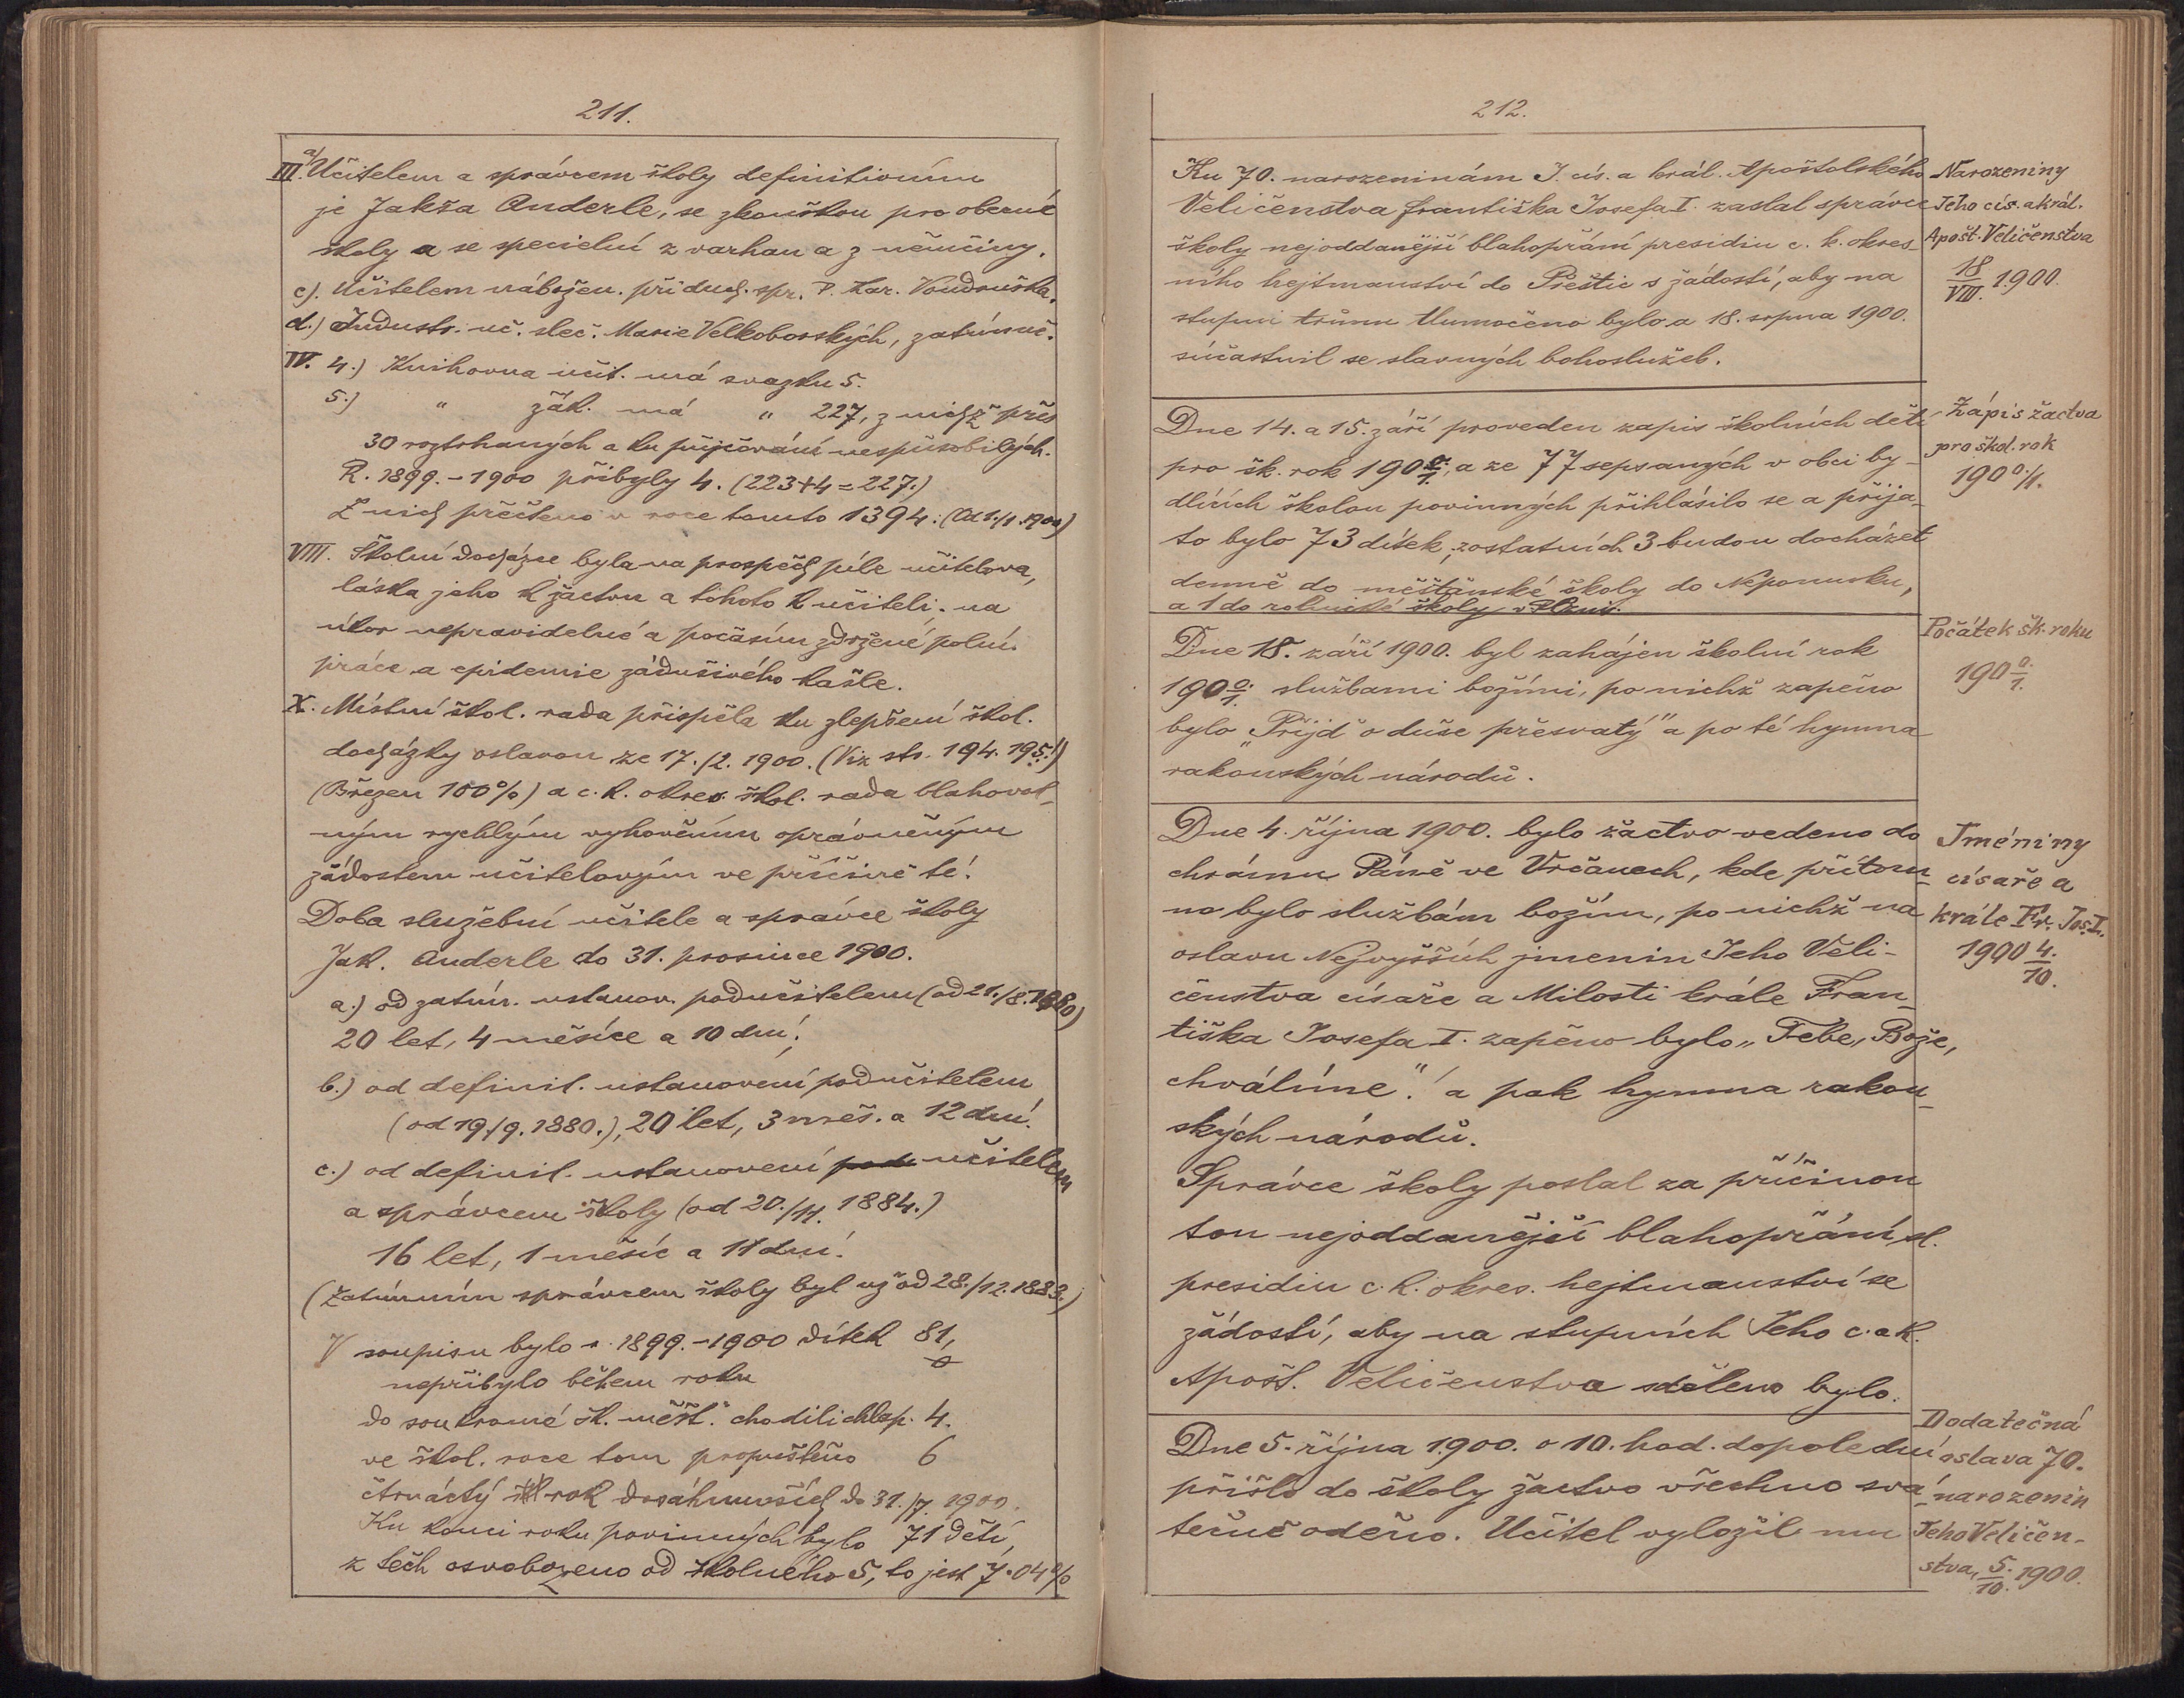 211.
III. a) Učitelem a správcem školy definitivním
je Jakža Anderle, se zkouškou pro obecné
školy a se specielní z varhan a z němčiny.
c). Učitelem nábožen. při duch. spr. P. Kar. Voudruška.
d.) Industr. uč. sleč. Marie Velkoborských, zatímně.
IV. 4.) Knihovna učit. má svazku 5.
5.) " žák. má " 227, z nichž přes
30 roztrhaných a ku půjčování nespůsobilých.
R. 1899.-1900 přibyly 4. (223+4=227.)
Z nich přečteno v roce tomto 1394: (Od 1./1. 1900)
VIII. Školní docházce byla na prospěch píle učitelova,
láska jeho k žactvu a tohoto k učiteli; na
úkor nepravidelné a počasím zdržené polní
práce a epidemie zádušivého kašle.
X. Místní škol. rada přispěla ku zlepšení škol.
docházky oslavou ze 17./2. 1900. (Viz str. 194. 195.!)
(Březen 100%) a c. k. okres. škol. rada blahovol-
ným rychlým vyhověním oprávněným
žádostem učitelovým ve příčině té!
Doba služební učitele a správce školy
Jak. Anderle do 31. prosince 1900.
a.) od zatím. ustanov. podučitelem (od 21./8. 1880)
20 let, 4 měsíce a 10 dní;
b.) od definit. ustanovení podučitelem
(od 19./9. 1880.), 20 let, 3 měs. a 12 dní.
c.) od definit. ustanovení podu učitelem
a správcem školy (od 20./11. 1884.)
16 let, 1 měsíc a 11 dní.
(Zatímním správcem školy byl už od 28./12. 1883.)
V soupisu bylo r. 1899.-1900 dítek 81,
nepřibylo během roku 0
do soukromé šk. "měšť." chodili chlap. 4.
ve škol. roce tom propuštěno 6
čtrnáctý rok dosáhnuvších do 31./7. 1900.
Ku konci roku povinných bylo 71 dětí,
z těch osvobozeno od školného 5, to jest 7·04%
212.
Ku 70. narozeninám J. cís. a král. Apoštolského
Veličenstva Františka Josefa I. zaslal správce
školy nejoddanější blahopřání presidiu c. k. okres-
ního hejtmanství do Přeštic s žádostí, aby na
stupni trůnu tlumočeno bylo a 18. srpna 1900.
súčastnil se slavných bohoslužeb.
Narozeniny
Jeho cís. a král.
Apošt. Veličenstva
18/VIII. 1900.
Dne 14. a 15. září proveden zapis školních dětí
pro šk. rok 1900/1, a ze 77 sepsaných v obci by-
dlících školou povinných přihlásilo se a přija-
to bylo 73 dítek; zostatních 3 budou docházet
denně do měšťanské školy do Nepomuku,
a 1 do rolnické školy v Plzni.
Zápis žactva
pro škol. rok
1900/1.
Dne 18. září 1900. byl zahájen školní rok
1900/1. službami božími, po nichž zapěno
bylo „Přijď o duše přesvatý" a po té hymna
rakouských národů.
Počátek šk. roku
1900/1.
Dne 4. října 1900. bylo žactvo vedeno do
chrámu Páně ve Vrčanech, kde přítom-
no bylo službám božím, po nichž na
oslavu Nejvyšších jmenin Jeho Veli-
čenstva císaře a Milosti krále Fran-
tiška Josefa I. zapěno bylo „Tebe, Bože,
chválíme"! a pak hymna rakou-
ských národů.
Správce školy poslal za příčinou
tou nejoddanější blahopřání sl.
presidiu c. k. okres. hejtmanství se
žádostí, aby na stupních Jeho c. a k.
Apošt. Veličenstva sděleno bylo.
Jméniny
císaře a
krále Fr. Jos. I.
1900 4./10.
Dne 5. října 1900. o 10. hod. dopolední
přišlo do školy žactvo všechno svá-
tečně oděno. Učitel vyložil mu
Dodatečná
oslava 70.
narozenin
Jeho Veličen-
stva, 5./10. 1900.